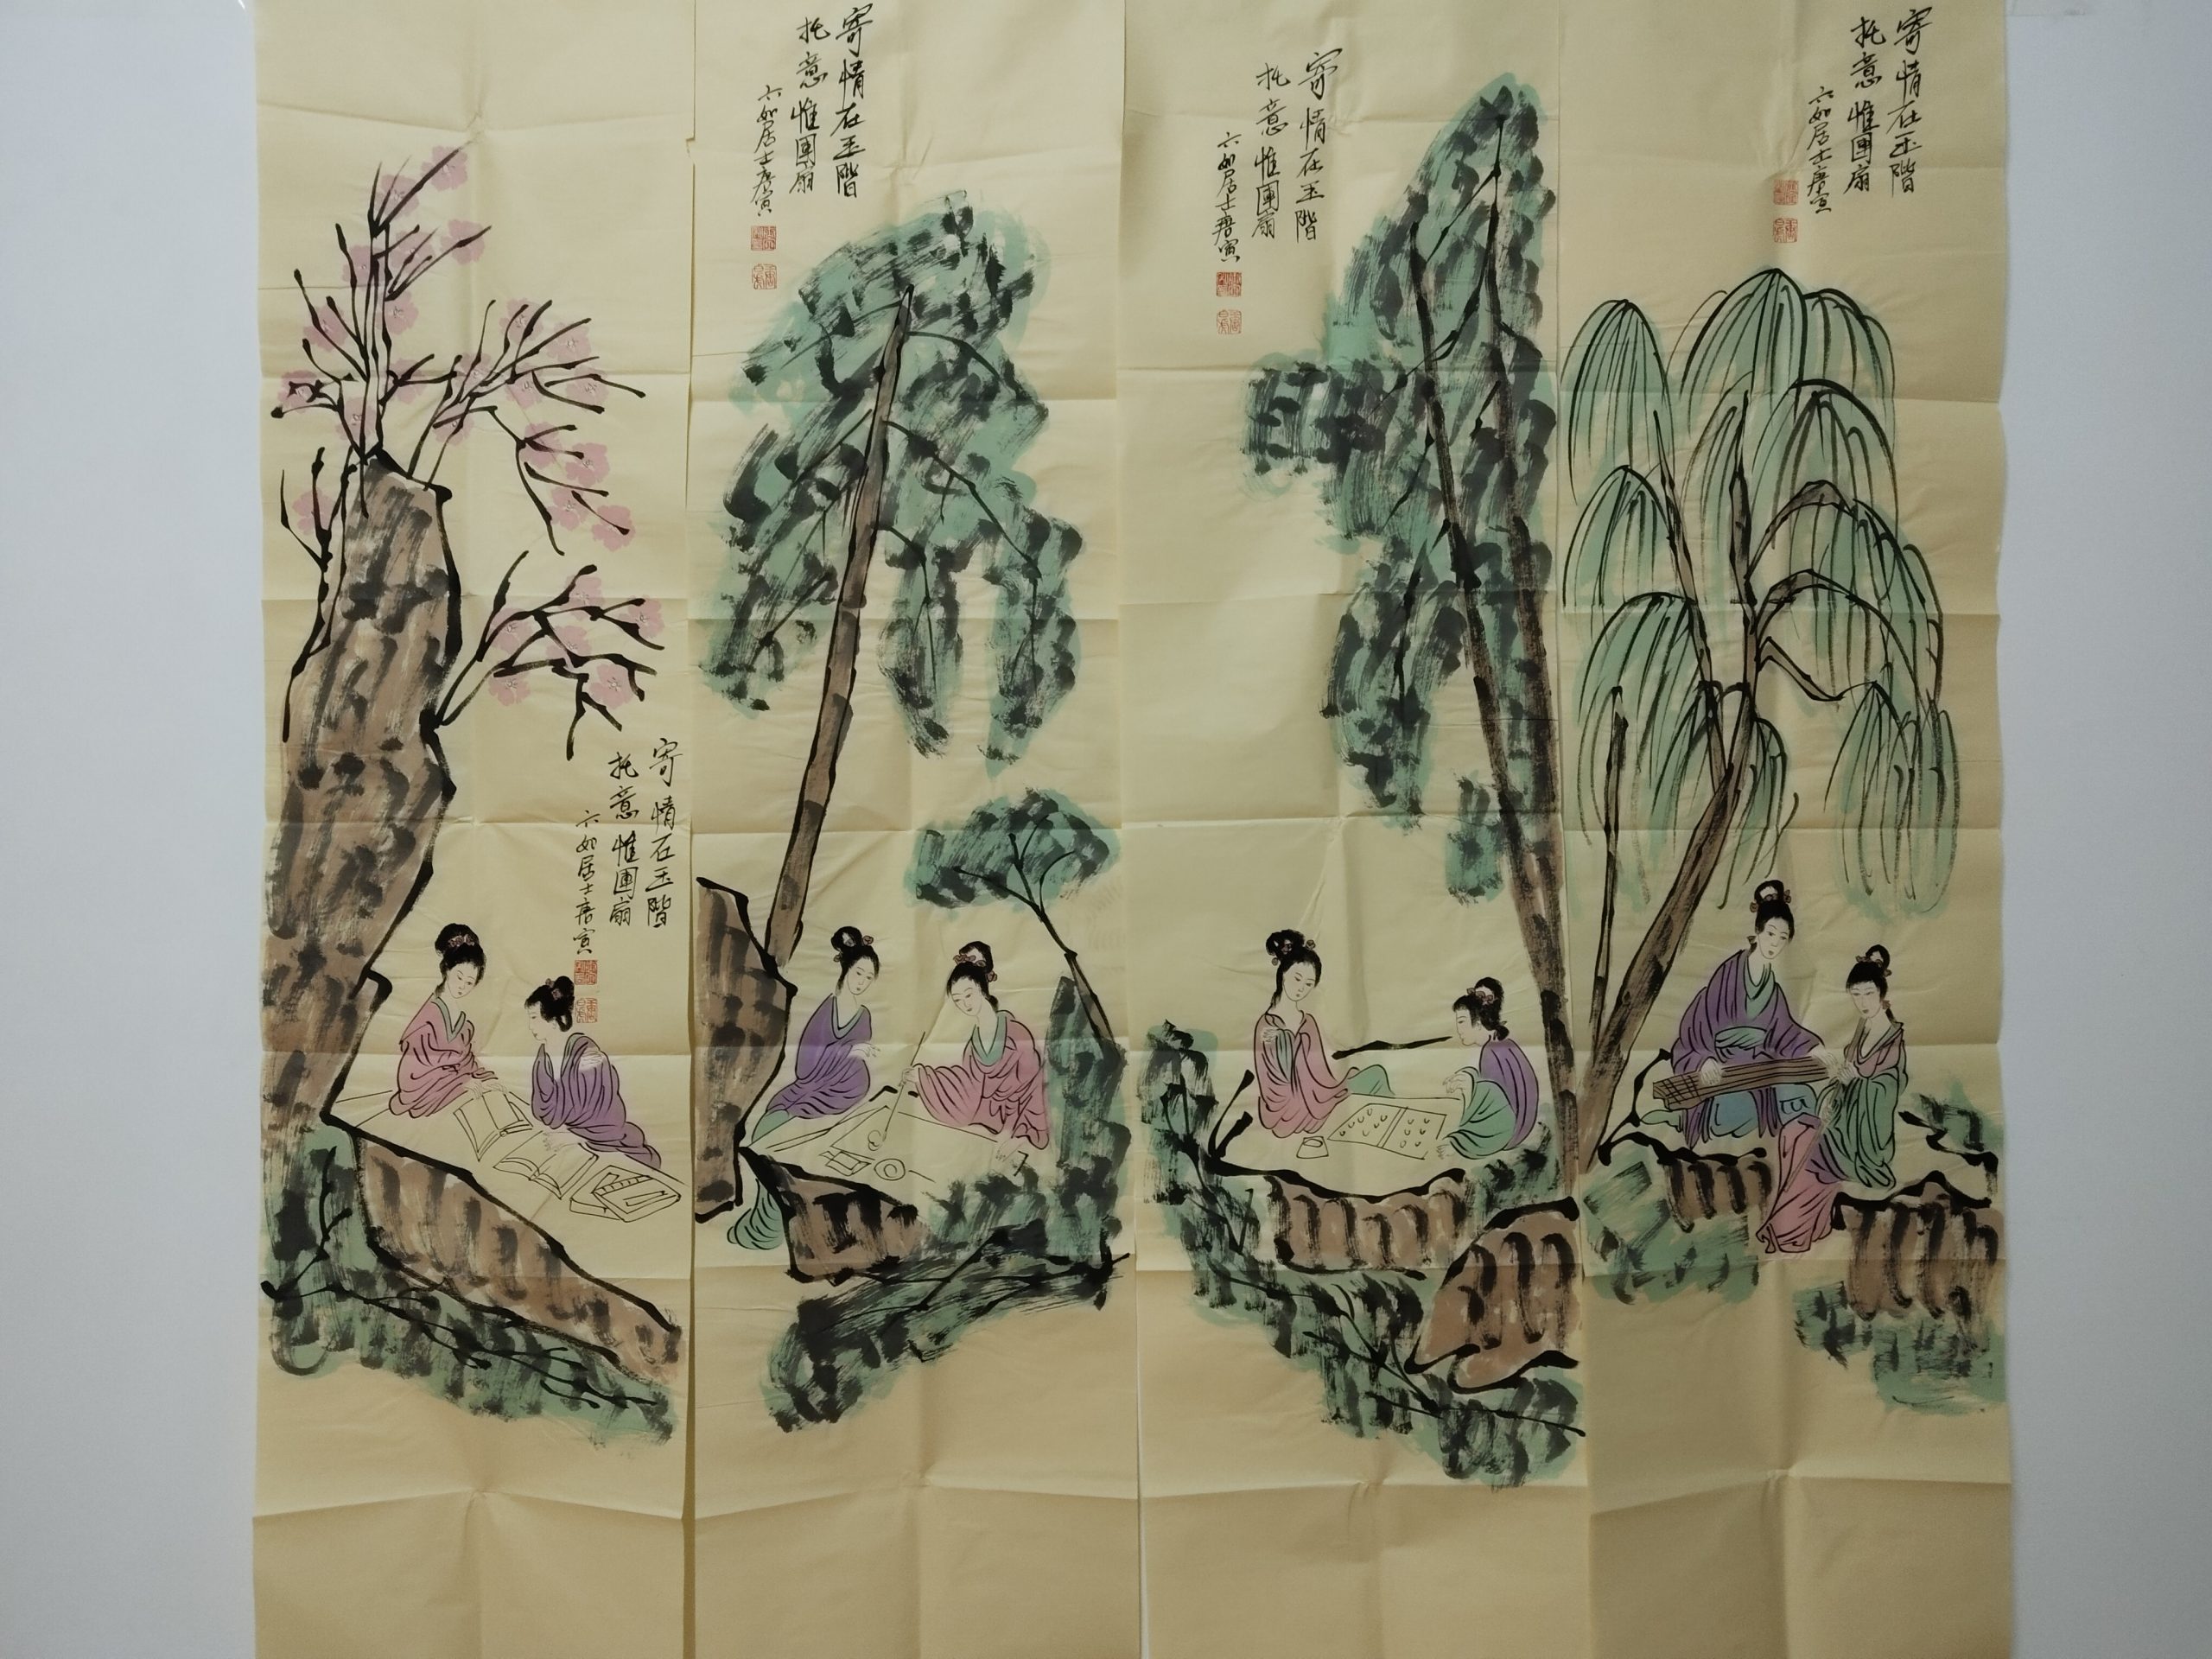 寄情在玉階
托意惟團扇
六如居士唐寅
寄情在玉階
托意惟團扇
六如居士唐寅
寄情在玉階
托意惟團扇
六如居士唐寅
寄情在玉階
托意惟團扇
六如居士唐寅